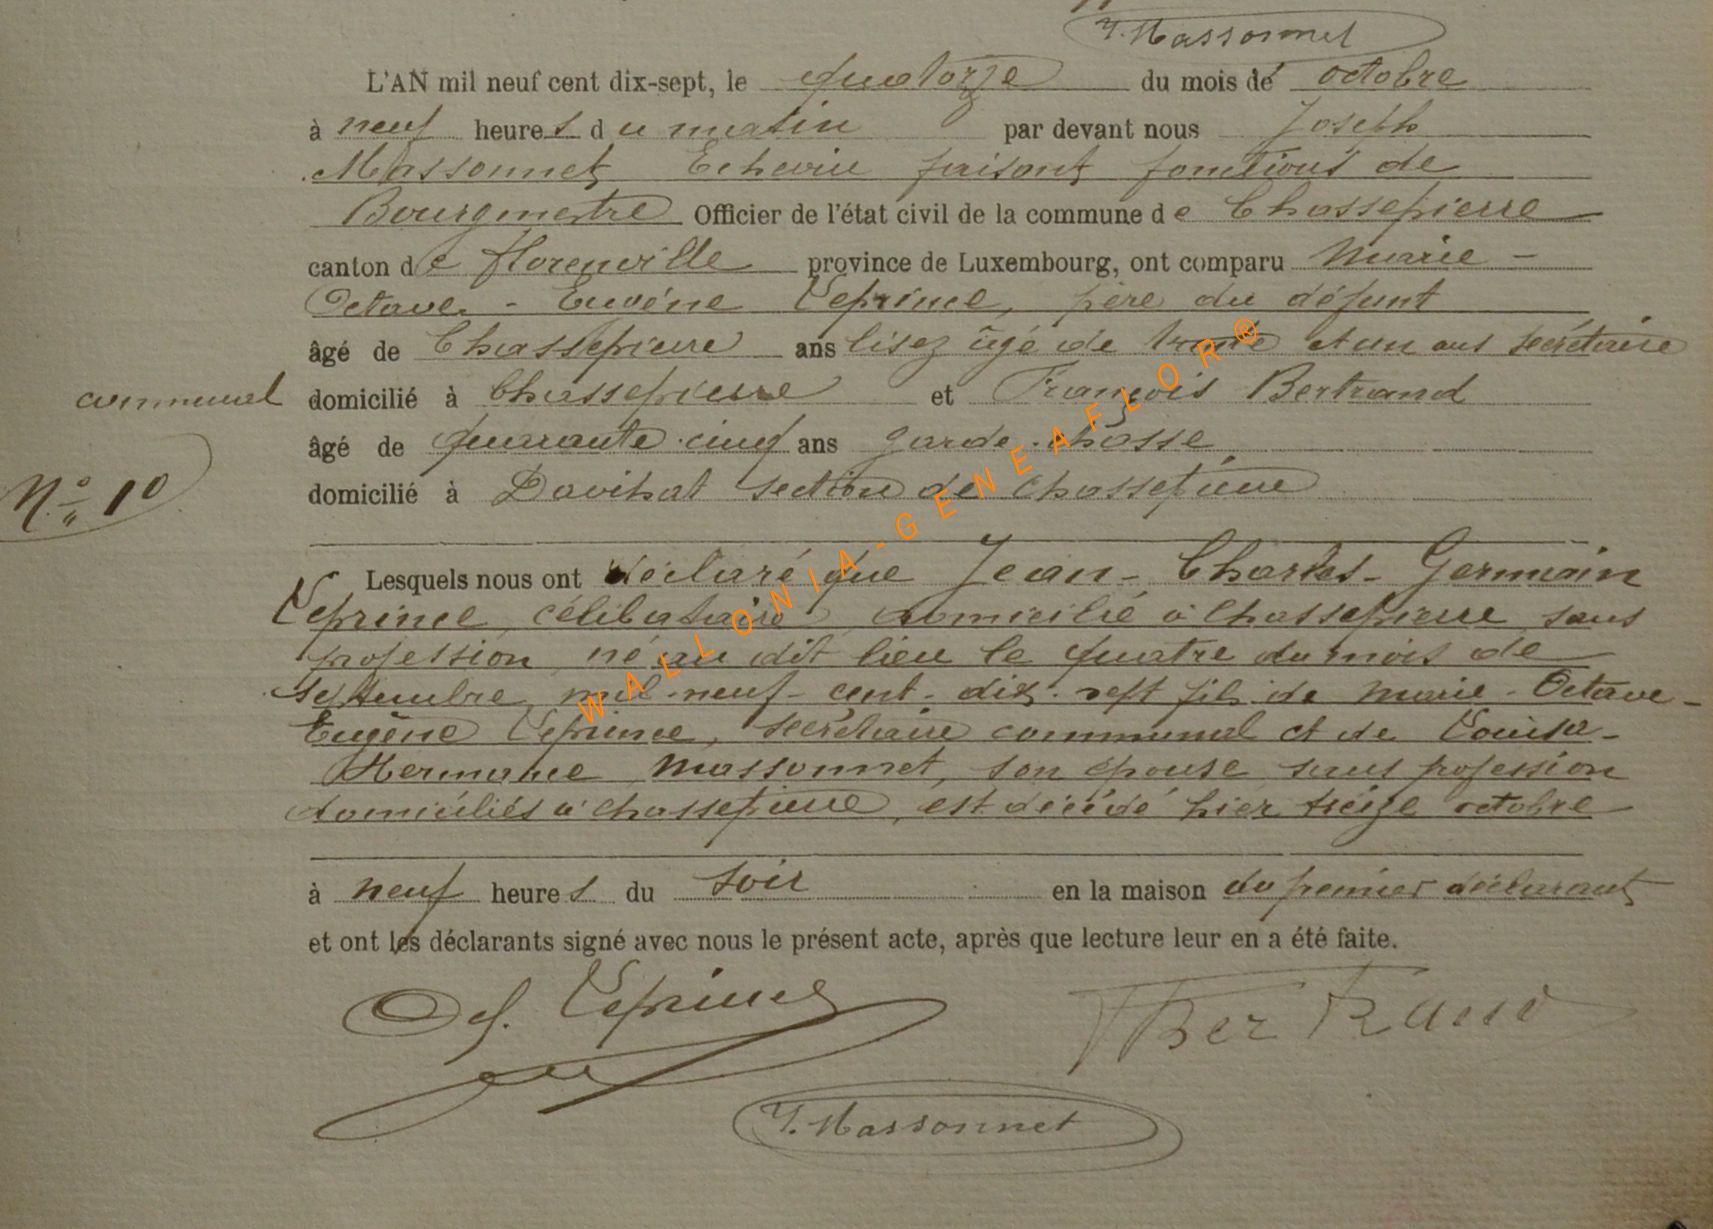 J. Massonnet
L'AN mil neuf cent dix-sept, le quatorze du mois de octobre
à neuf heures du matin par devant nous Joseph
Massonnet Echevin faisant fonctions de
Bourgmestre Officier de l'état civil de la commune de Chassepierre
canton de florenville province de Luxembourg, ont comparu Marie -
Octave - Euvéne Leprince, père du défunt
âgé de Chassepierre ans lisez âgé de trente et un ans secrétaire
communal domicilié à Chassepierre et François Bertrand
âgé de quarante-cinq ans garde-chasse
N° 10
domicilié à Davihat section de Chassepierre
Lesquels nous ont déclaré que Jean - Charles - Germain
Leprince, célibataire, domicilié à Chassepierre sans
profession, né au dit lieu le quatre du mois de
septembre mil-neuf-cent-dix-sept fils de Marie - Octave -
Eugène Leprince, secrétaire communal et de Louisa -
Hermance Massonnet, son épouse sans profession
domiciliés à Chassepierre, est décédé hier treize octobre
à neuf heures du soir en la maison du premier déclarant
et ont les déclarants signé avec nous le présent acte, après que lecture leur en a été faite.
Oct. Leprince
F Bertrand
J. Massonnet
WALLONIA-GENEAFLOR®